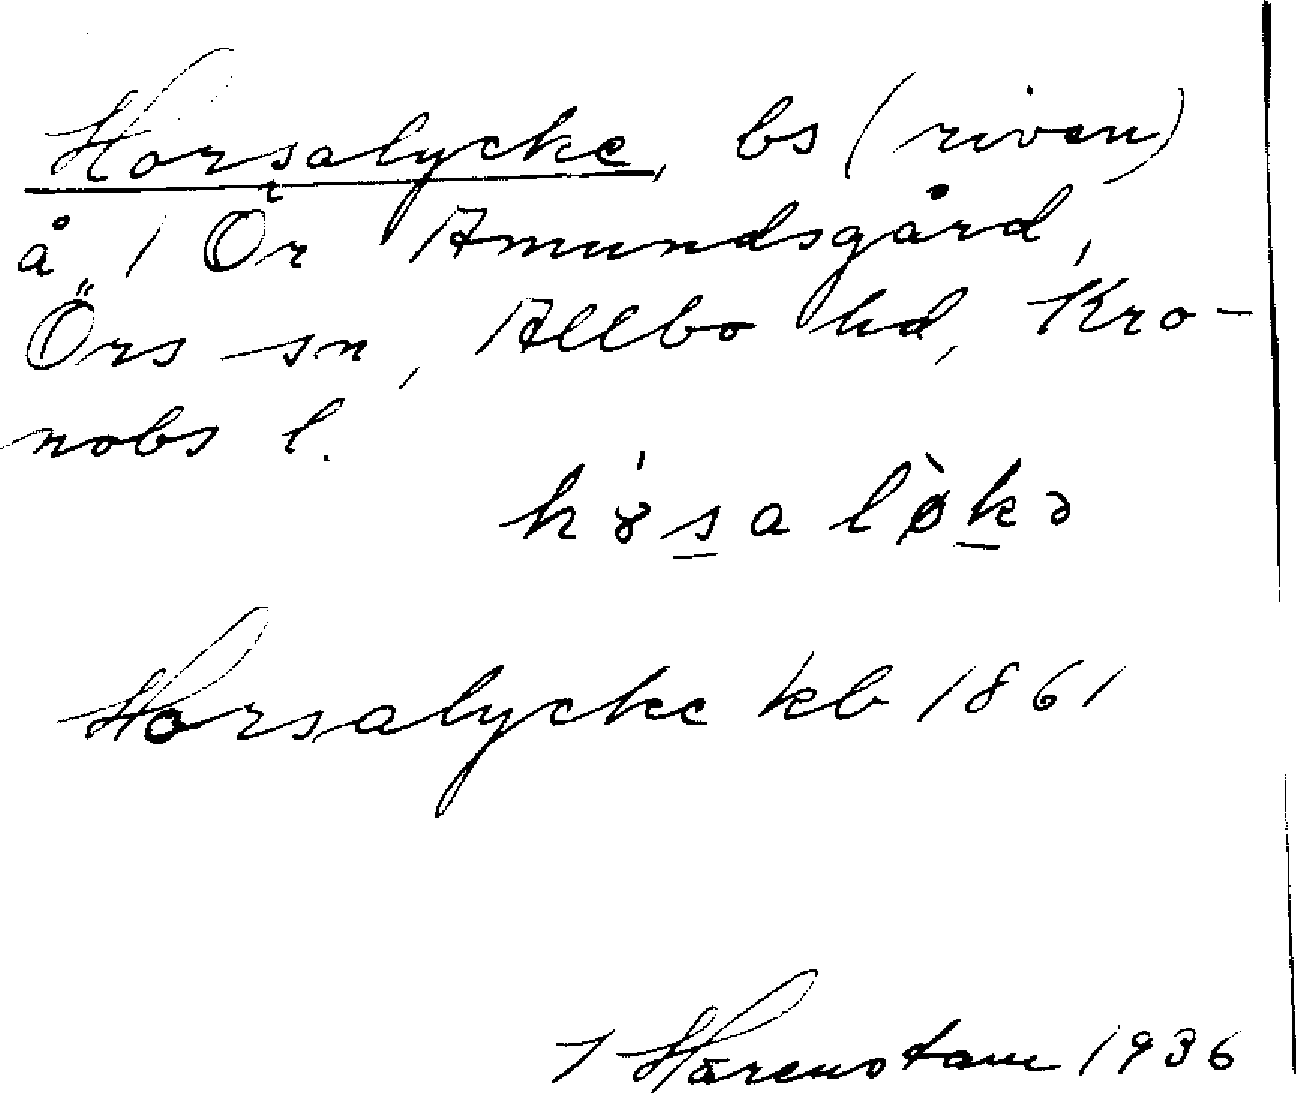 Horsalycke, bs (riven)
å 1 Ör Amundsgård,
Örs sn, Allbo hd, Kro-
nobs l.
hɤ́salø̀kə
Horsalycke kb 1861
J Hårenstam 1936